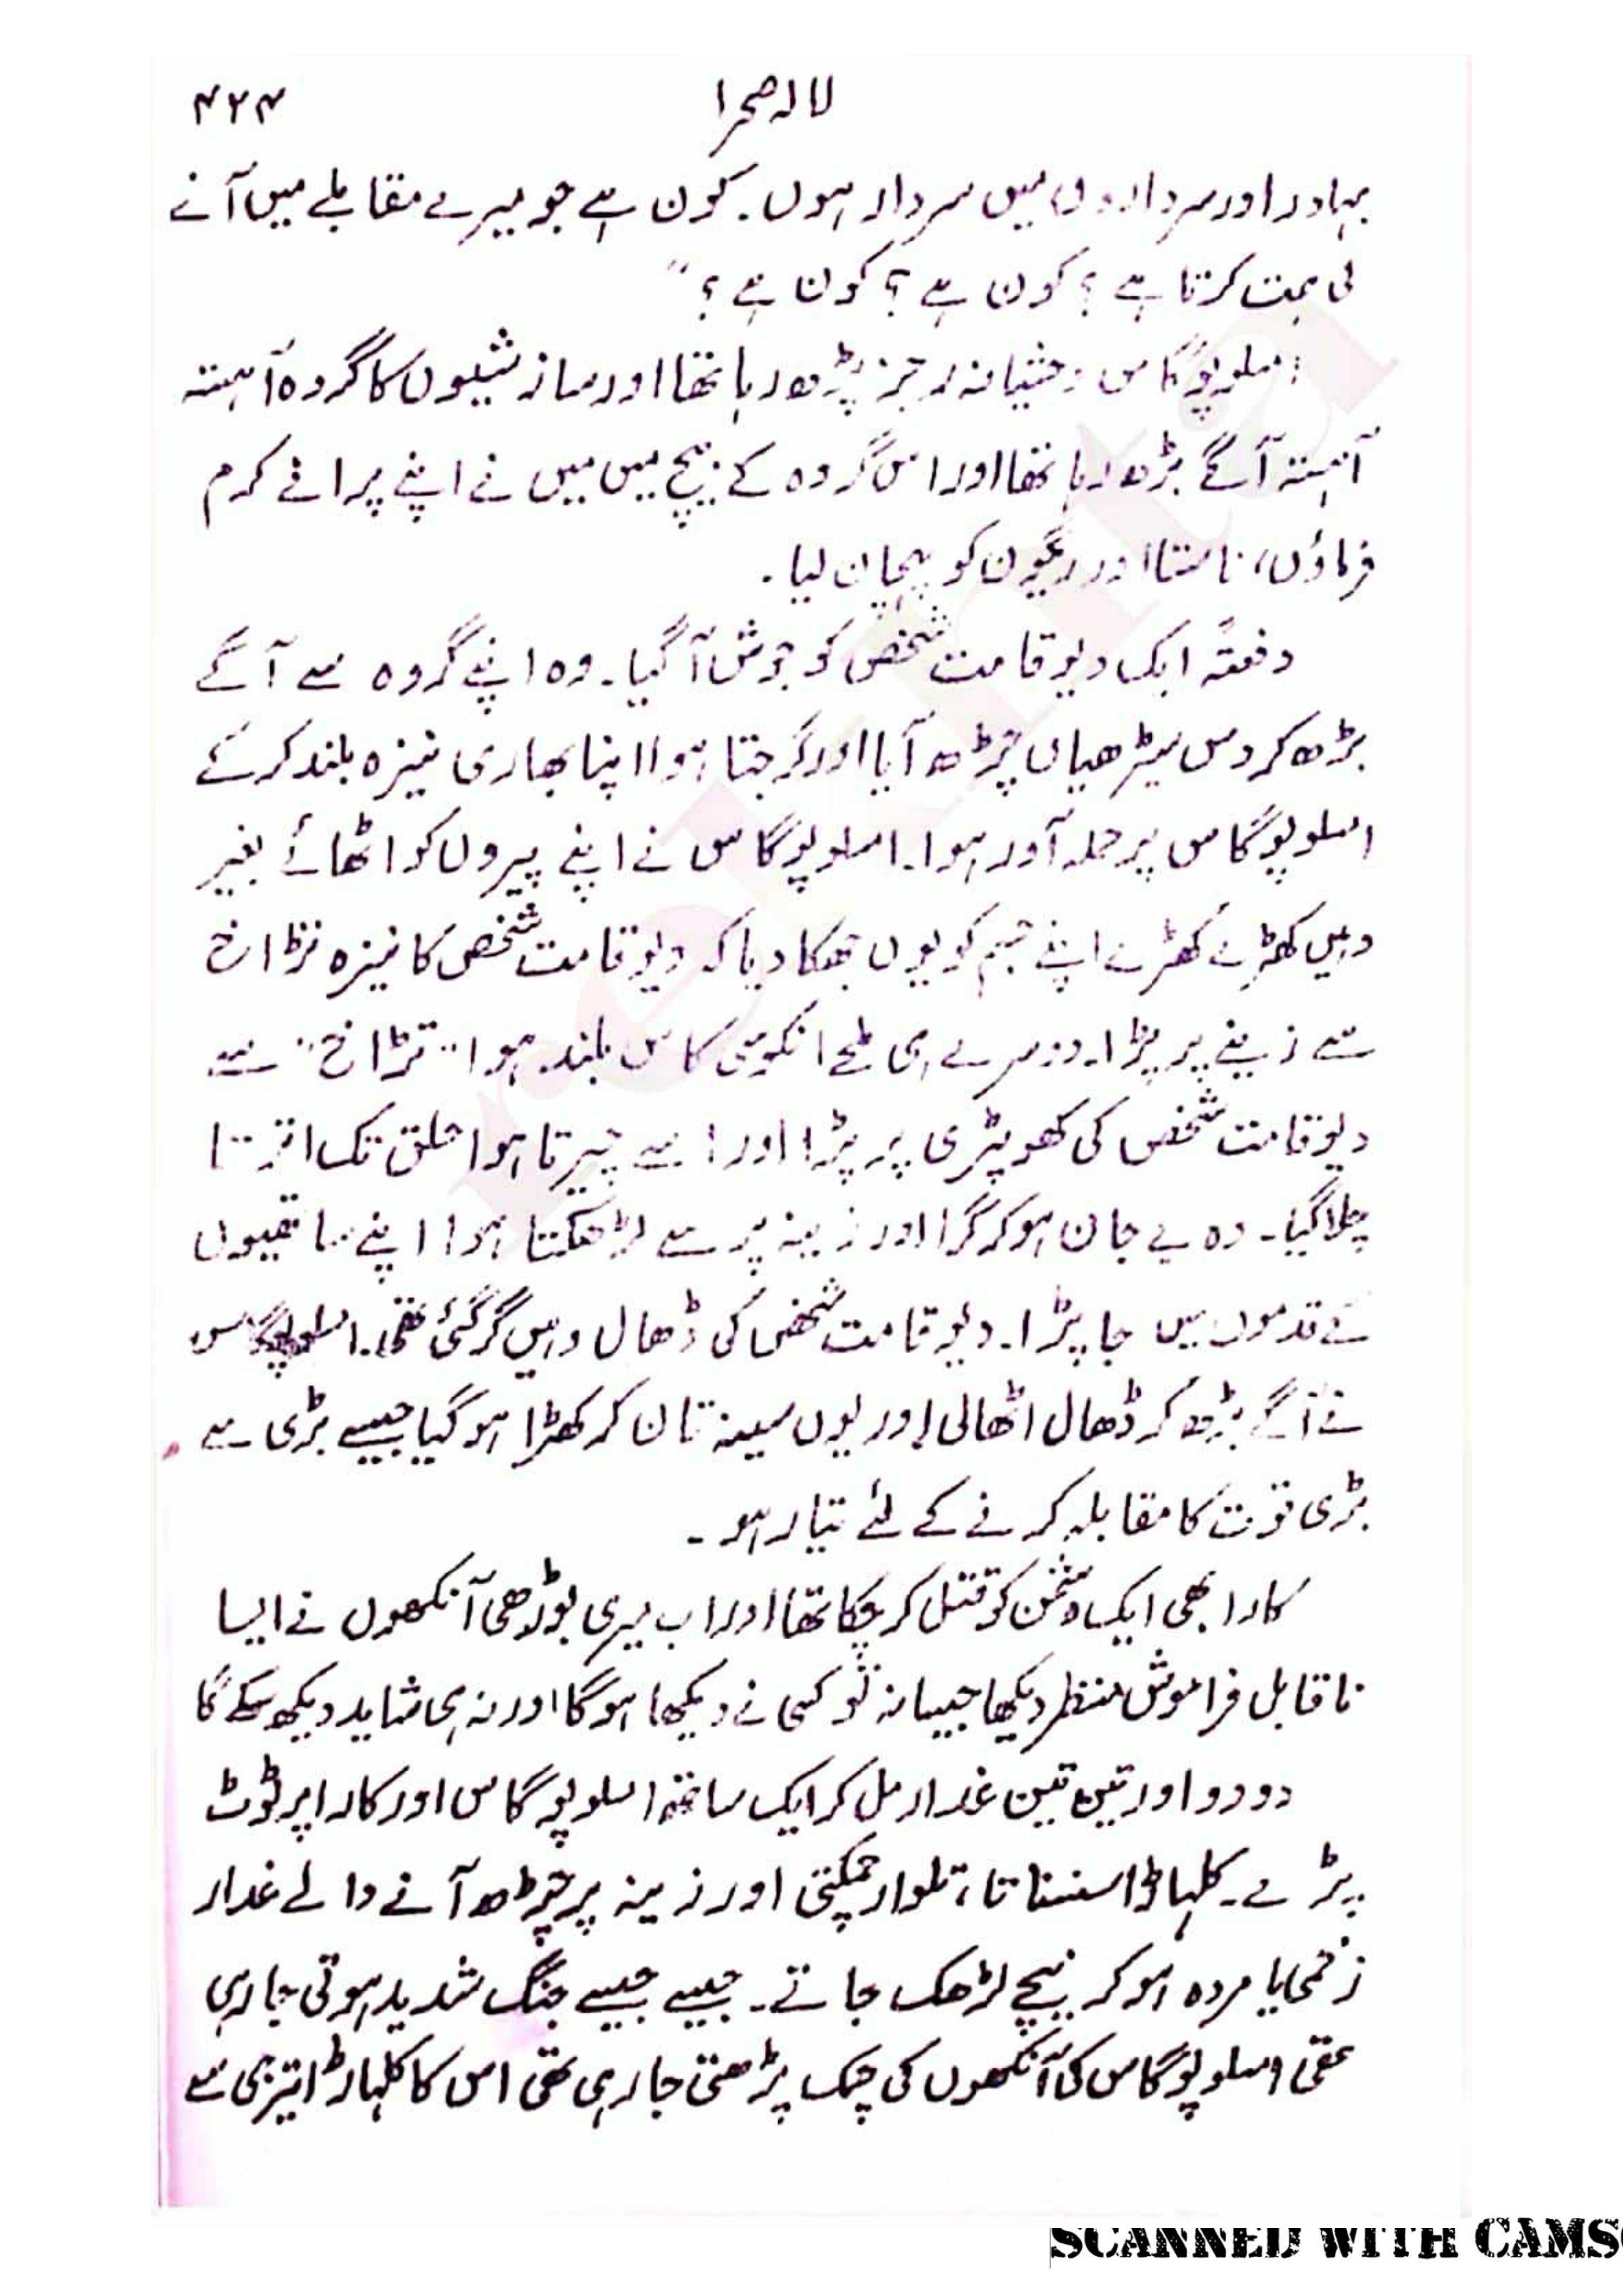 لالہ صحرا ۴۲۴
بہادر اور سرداروں میں سردار ہوں۔ کون ہے جو میرے مقابلے میں آنے
کی ہمت کرتا ہے؟ کون ہے؟ کون ہے؟"
املوپوگاس وحشیانہ رجز پڑھ رہا تھا اور سازشیوں کا گروہ آہستہ
آہستہ آگے بڑھ رہا تھا اور اس گروہ کے بیچ میں میں نے اپنے پرانے کرم
فرماؤں، ناستا اور رگون کو پہچان لیا۔
دفعتہً ایک دیوقامت شخص کو جوش آ گیا۔ وہ اپنے گروہ سے آگے
بڑھ کر دس سیڑھیاں چڑھ آیا اور گرجتا ہوا اپنا بھاری نیزہ بلند کرکے
املوپوگاس پر حملہ آور ہوا۔ املوپوگاس نے اپنے پیروں کو اٹھائے بغیر
وہیں کھڑے کھڑے اپنے جسم کو یوں جھکا دیا کہ دیوقامت شخص کا نیزہ تڑاخ
سے زینے پر پڑا۔ دوسرے ہی لمحے انکوسی کاس بلند ہوا "تڑاخ" سے
دیوقامت شخص کی کھوپڑی پر پڑا اور اسے چیرتا ہوا حلق تک اترتا
چلا گیا۔ وہ بے جان ہوکر گرا اور زینہ پر سے لڑھکتا ہوا اپنے ساتھیوں
کے قدموں میں جا پڑا۔ دیوقامت شخص کی ڈھال وہیں گر گئی تھی۔ املوپوگاس
نے آگے بڑھ کر ڈھال اٹھالی اور یوں سینہ تان کر کھڑا ہو گیا جیسے بڑی سے
بڑی قوت کا مقابلہ کرنے کے لئے تیار ہو۔
کارا بھی ایک دشمن کو قتل کر چکا تھا اور اب میری بوڑھی آنکھوں نے ایسا
ناقابل فراموش منظر دیکھا جیسا نہ تو کسی نے دیکھا ہوگا اور نہ ہی شاید دیکھ سکے گا
دو دو اور تین تین غدار مل کر ایک ساتھ املوپوگاس اور کارا پر ٹوٹ
پڑے۔ کلہاڑا سنسناتا، تلوار چمکتی اور زینہ پر چڑھ آنے والے غدار
زخمی یا مردہ ہوکر نیچے لڑھک جاتے۔ جیسے جیسے جنگ شدید ہوتی جا رہی
تھی املوپوگاس کی آنکھوں کی چمک بڑھتی جا رہی تھی اس کا کلہاڑا تیزی سے
SCANNED WITH CAMS